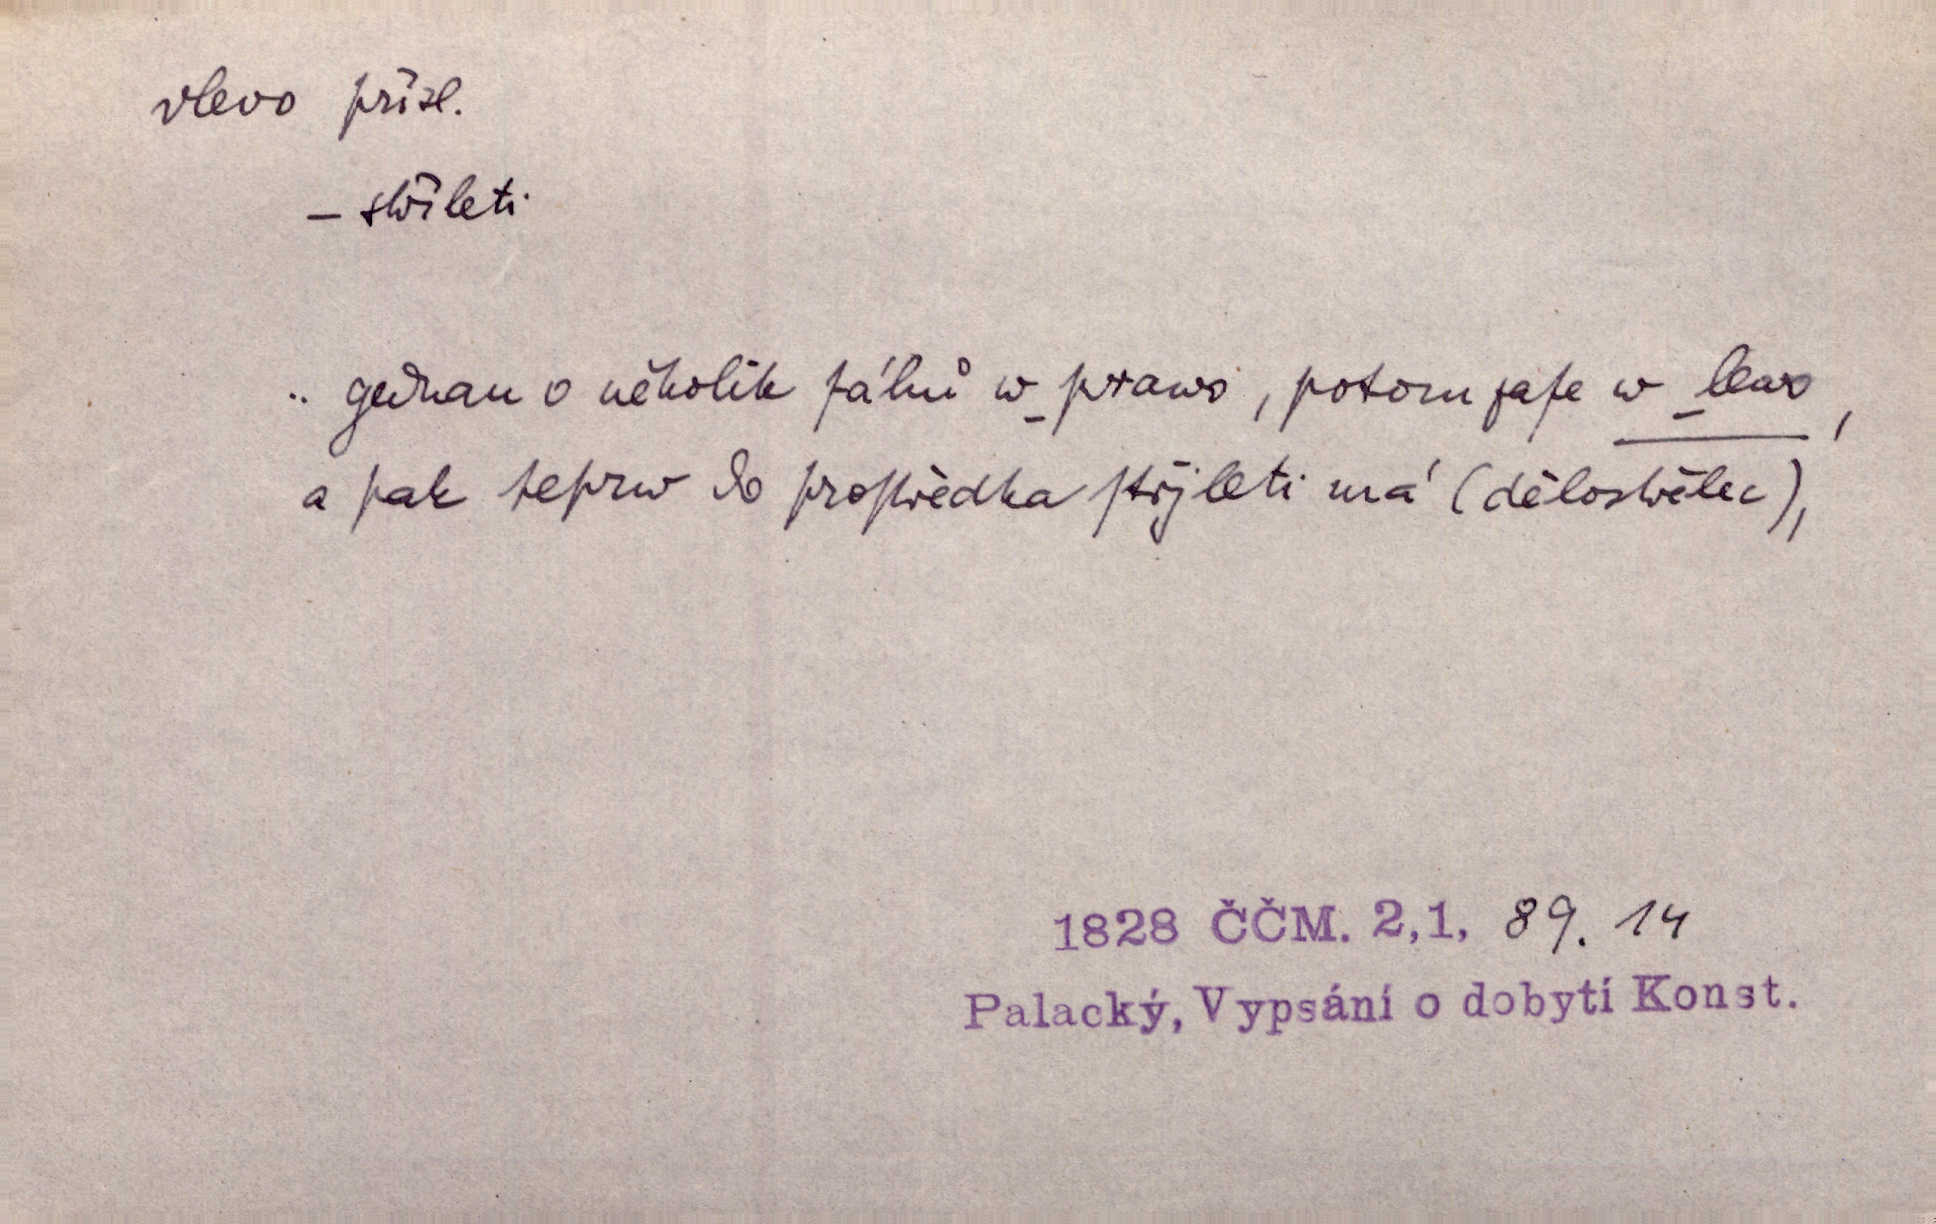 vlevo přísl.
– stříleti
.. gednau o několik sáhů w_prawo, potom zase w_lewo,
a pak teprw do prostředka střjleti má (dělostřelec),
1828 ČČM. 2,1, 89. 14
Palacký, Vypsání o dobytí Konst.